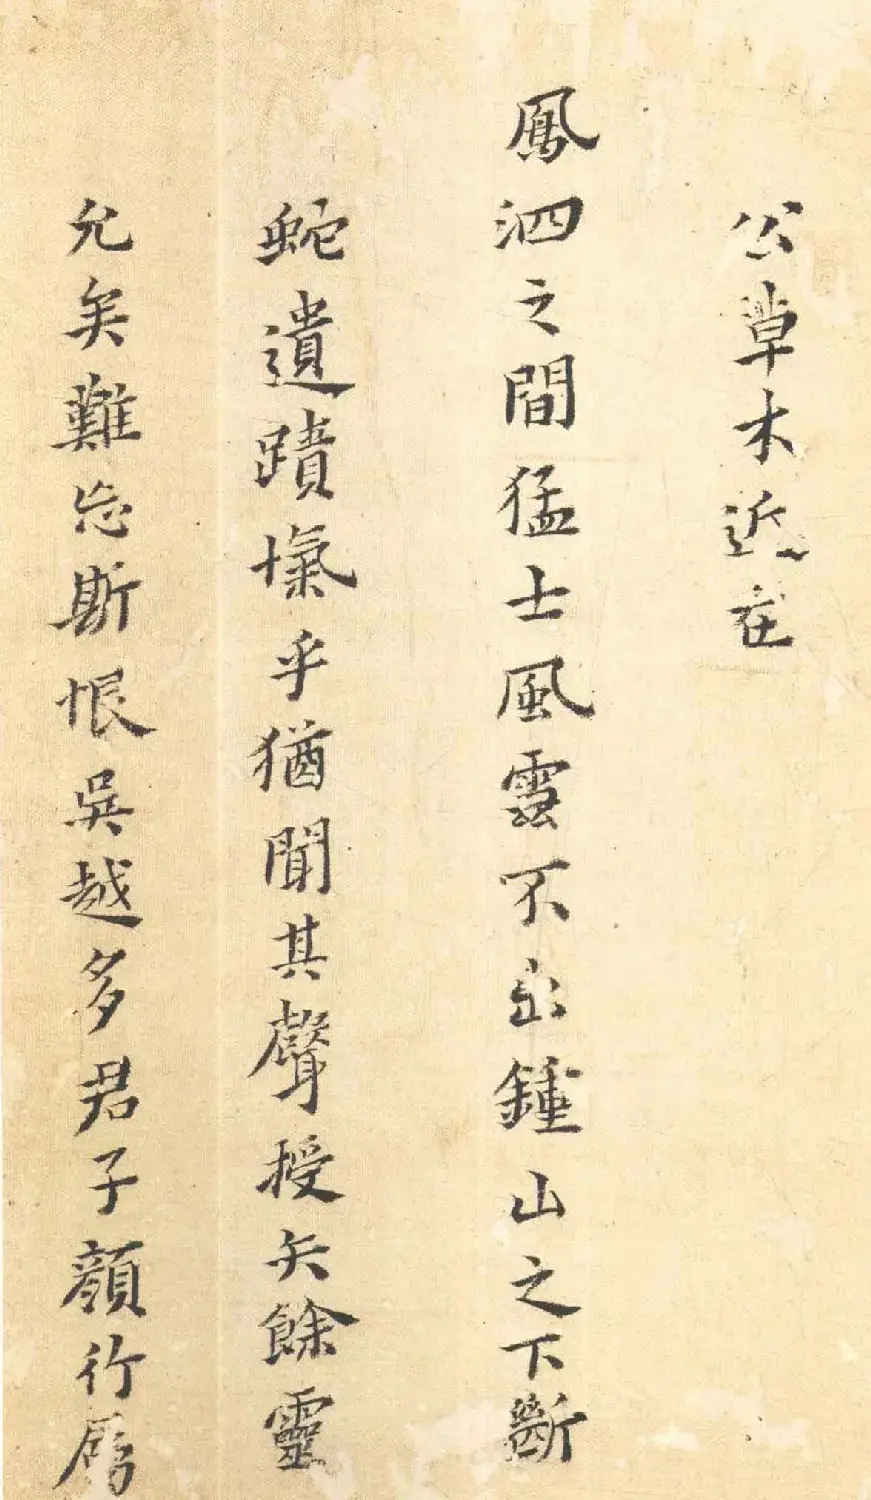 公草木近在
鳳泗之間猛士風雲不出鍾山之下斷
蛇遺蹟愾乎猶聞其聲授矢餘靈
允矣難忘斯恨吳越多君子顏行爲